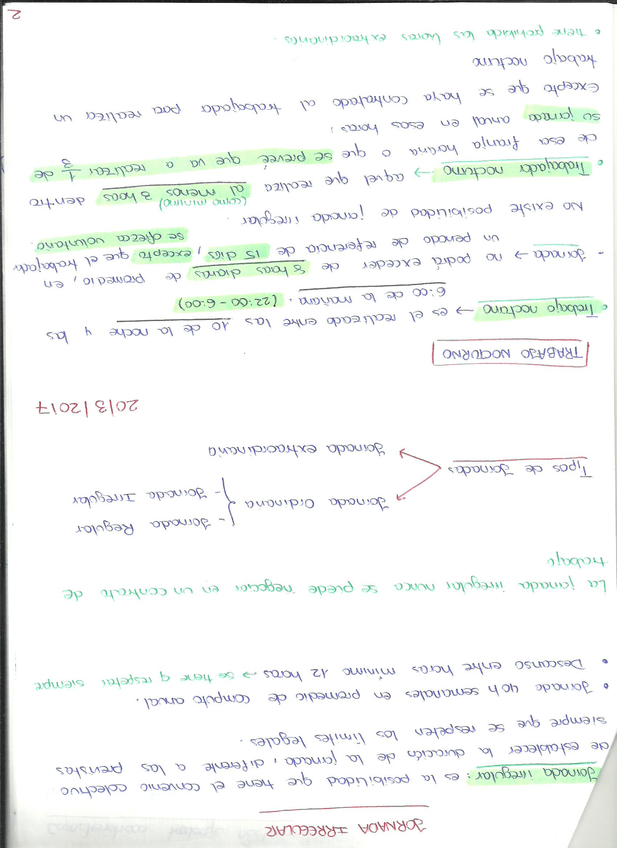 JORNADA IRREGULAR
Jornada irregular: es la posibilidad que tiene el convenio colectivo
de establecer la duración de la jornada, diferente a las previstas
siempre que se respeten los límites legales.
• Jornada 40h semanales en promedio de computo anual.
• Descanso entre horas mínimo 12 horas → se tiene q respetar siempre
La jornada irregular nunca se puede negociar en un contrato de
trabajo
Tipos de Jornadas
Jornada Ordinaria { - Jornada Regular
- Jornada Irregular
Jornada extraordinaria
20/3/2017
TRABAJO NOCTURNO
• Trabajo nocturno → es el realizado entre las 10 de la noche y las
6:00 de la mañana. (22:00 - 6:00)
- Jornada → no podrá exceder de 8 horas diarias de promedio, en
un periodo de referencia de 15 días, excepto que el trabajador
se ofrezca voluntario.
No existe posibilidad de jornada irregular
• Trabajador nocturno → aquel que realiza al menos 3 horas dentro
(como mínimo)
de esa franja horaria o que se prevée que va a realizar 1/3 de
su jornada anual en esas horas;
Excepto que se haya contratado al trabajador para realizar un
trabajo nocturno
• Tiene prohibida las horas extraordinarias.
2